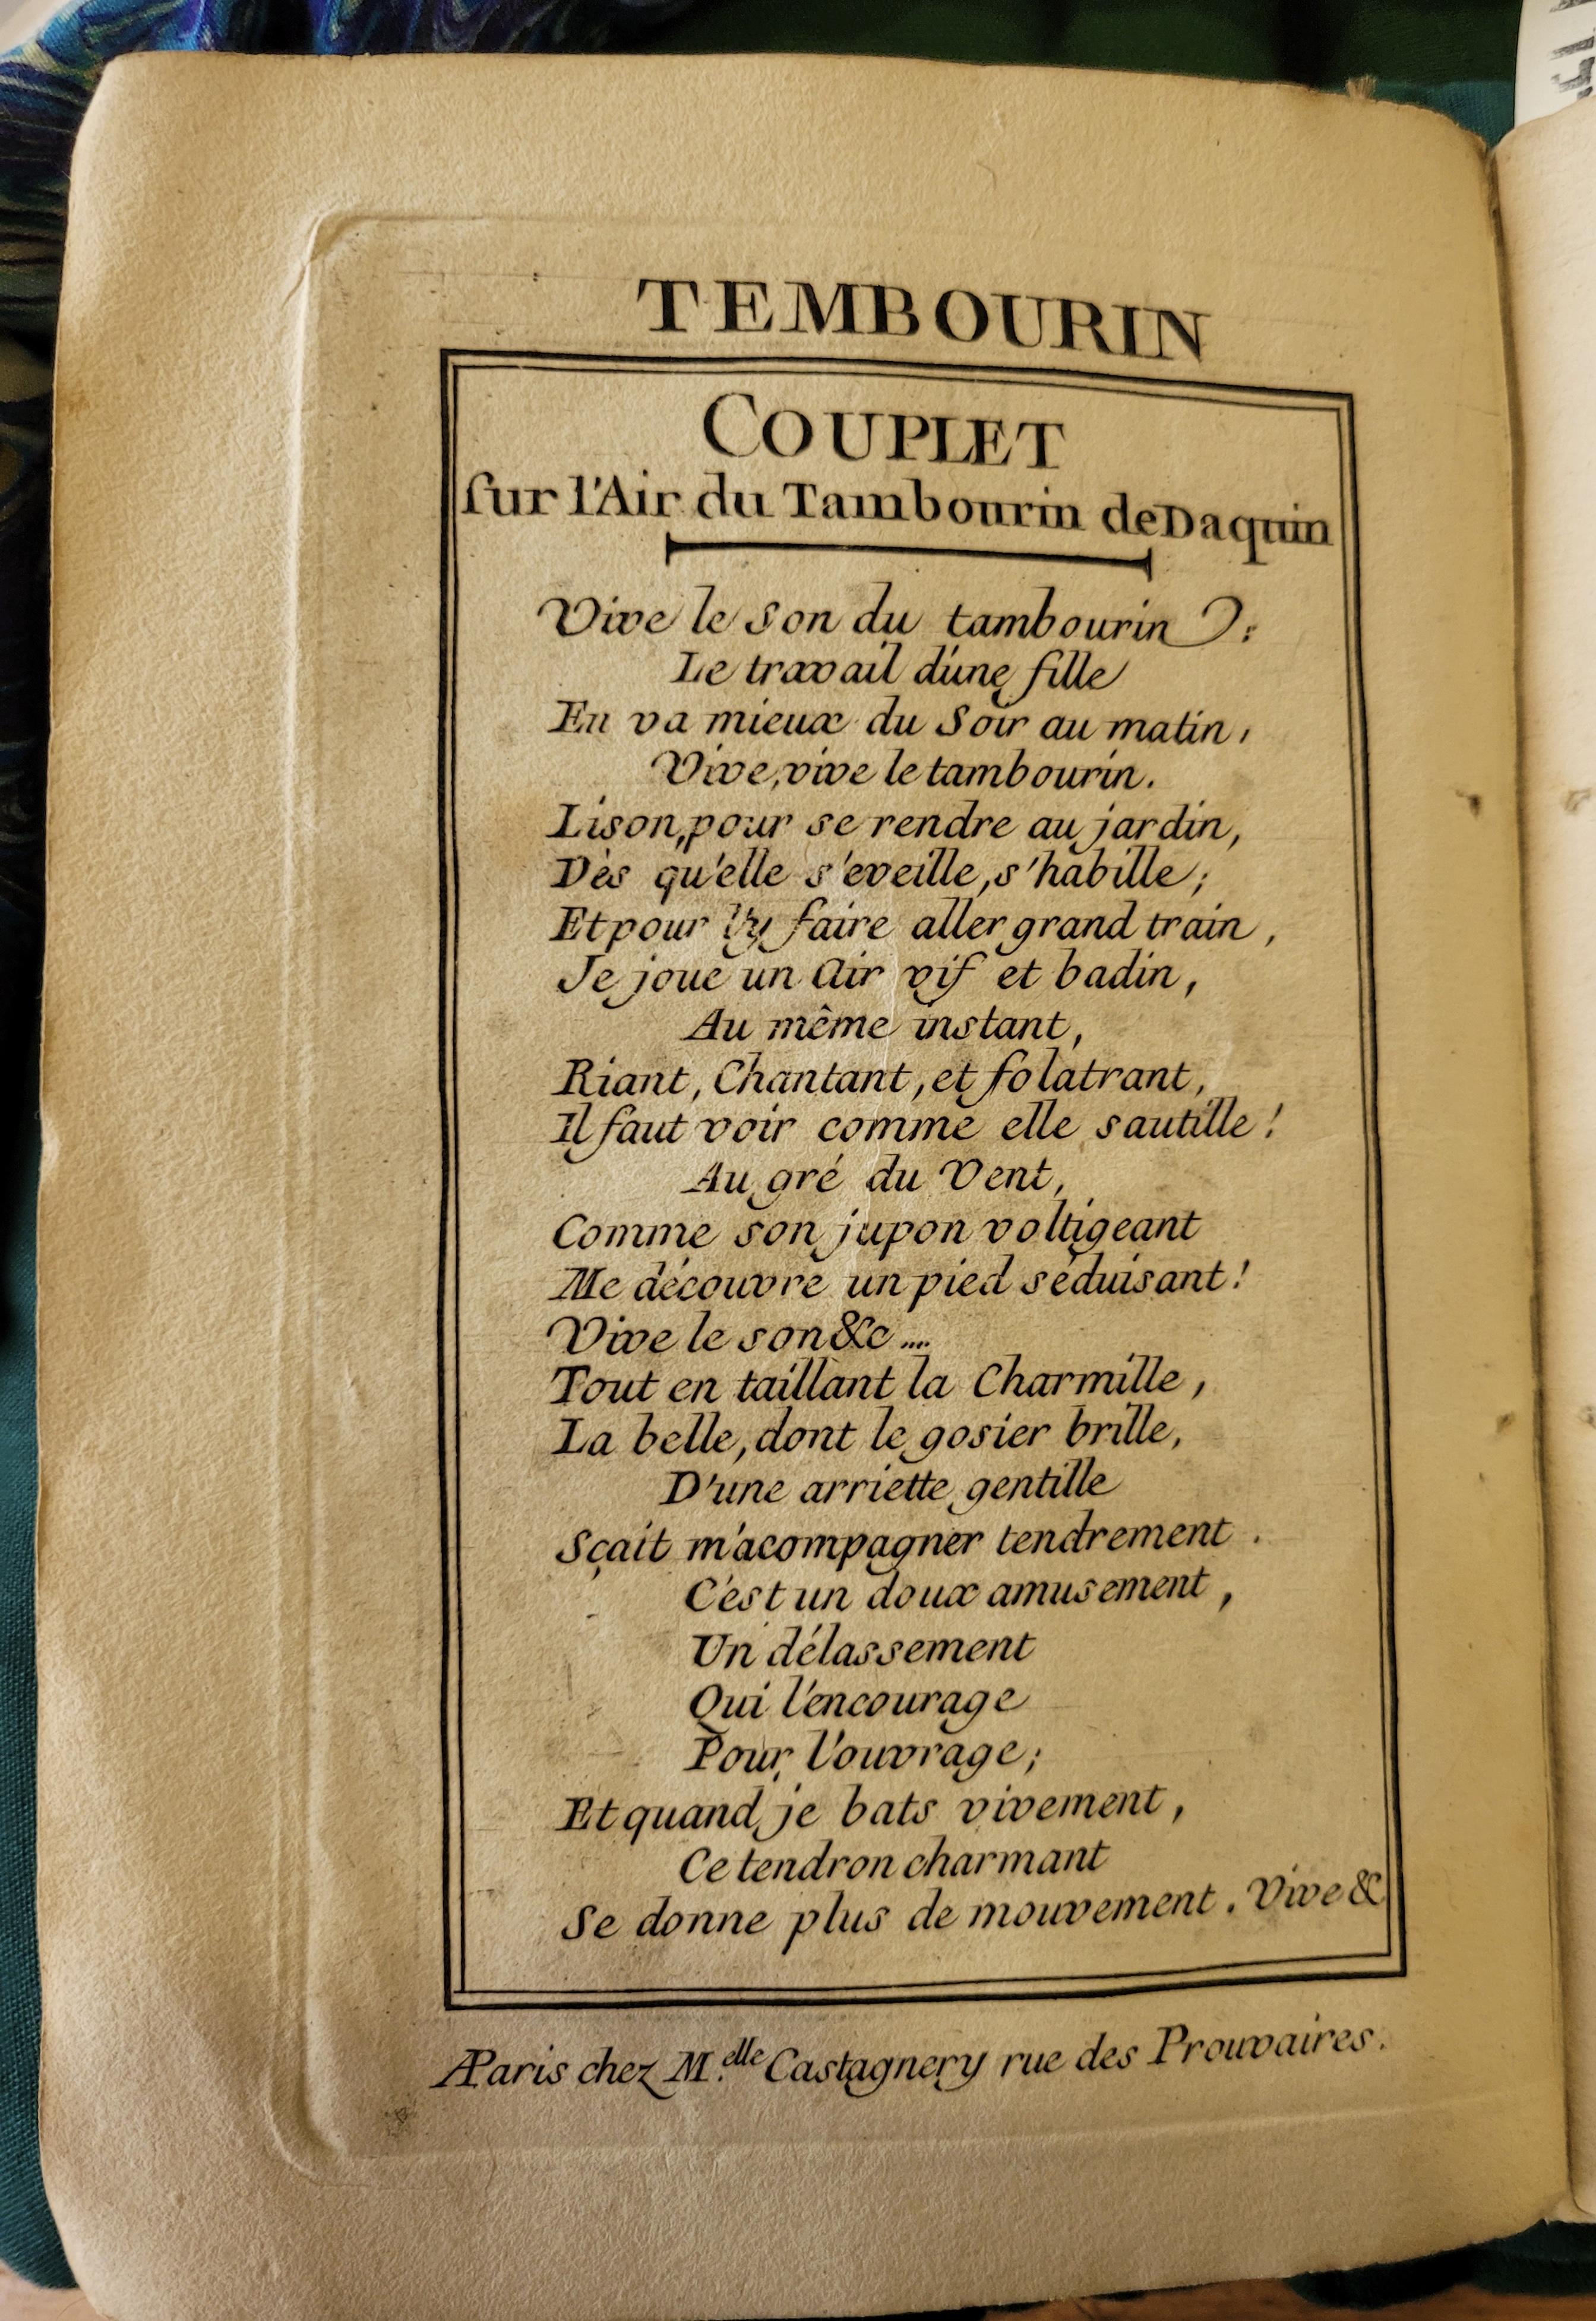 TEMBOURIN
COUPLET
ſur l'Air du Tambourin de Daquin
Vive le Son du tambourin :
Le travail d'une fille
En va mieux du Soir au matin,
Vive, vive le tambourin.
Lison, pour se rendre au jardin,
Dès qu'elle s'eveille, s'habille;
Et pour l'y faire aller grand train,
Je joue un Air vif et badin,
Au même instant,
Riant, Chantant, et folatrant,
Il faut voir comme elle sautille!
Au gré du Vent,
Comme son jupon voltigeant
Me découvre un pied séduisant!
Vive le son &c ....
Tout en taillant la Charmille,
La belle, dont le gosier brille,
D'une arriette gentille
Sçait m'acompagner tendrement.
C'est un doux amusement,
Un délassement
Qui l'encourage
Pour l'ouvrage;
Et quand je bats vivement,
Ce tendron charmant
Se donne plus de mouvement. Vive &
A Paris chez M.elle Castagnery rue des Prouvaires.